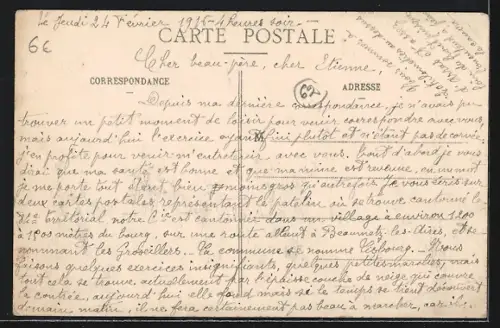 Le Jeudi 24 Février 1916 - 4 heures soir -
CARTE POSTALE
6€
Cher beau-père, cher Etienne,
CORRESPONDANCE
ADRESSE
Depuis ma dernière correspondance, je n'avais pu
trouver un petit moment de loisir pour venir correspondre avec vous,
mais aujourd'hui l'exercice ayant fini plutôt et n'étant pas de corvée,
j'en profite pour venir m'entretenir avec vous. Tout d'abord je vous
dirai que ma santé est bonne et que ma mine est revenue, en un mot
je me porte tout et bien, moins gros qu'autrefois. Je vous écris sur
deux cartes postales, représentant le patelin où se trouve cantonné le
territorial notre Cie est cantonnée dans un village à environ 1200
à 1500 mètres du bourg, sur une route allant à Beaumetz-les-Aires, et se
nommant les Groseillers. La commune se nomme Fébourg. Nous
faisons quelques exercices insignifiants, quelques petites marches, mais
tout cela se trouve actuellement par l'épaisse couche de neige qui couvre
la contrée, aujourd'hui elle fond mais si le temps se tient découvert
demain matin, il ne fera certainement pas beau à marcher, car il